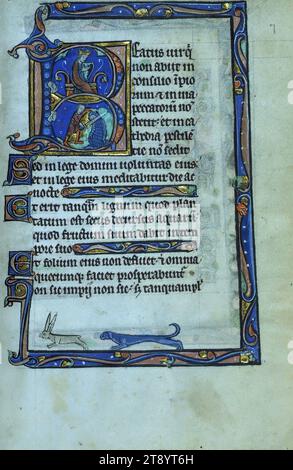 Beatus uirq̄
non abiit in
consilio īpio
rum & in uia
peccatorum nō
stetit & in ca
thedra pestilē
tie nō sedit
Sed in lege domini uoluntas eius
et in lege eius meditabitur die ac
nocte
Et erit tanq̄m lignum quod plan
tatum est secus decursus aquarū
quod fructum suum dabit in tem
pore suo
Et folium eius non defluet & omnia
quecunq; faciet prosperabunt̄
Non sic impii non sic s; tanquam pul
alamy
Image ID: 2T8YT6H
www.alamy.com